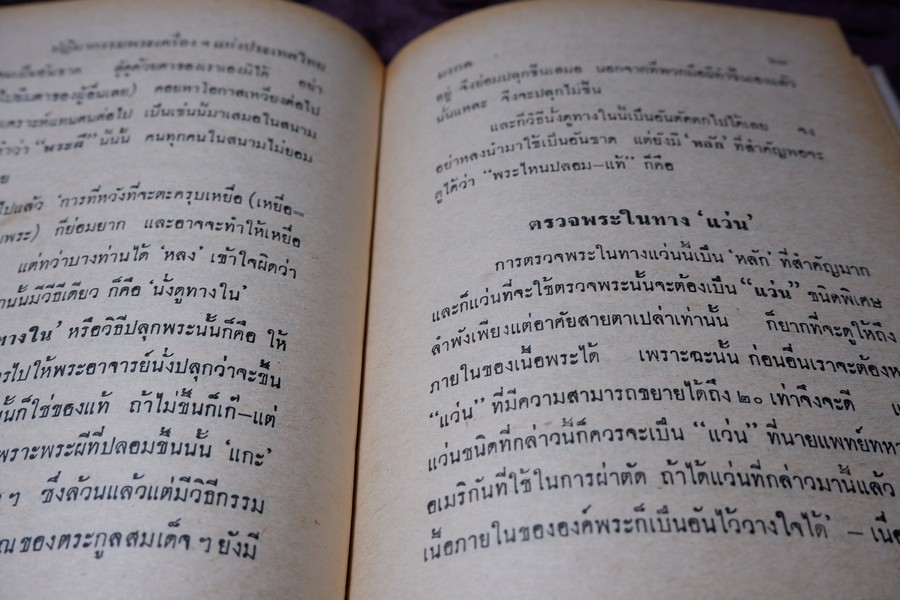 ปฏิมากรรมพระเครื่อง ฯ แห่งประเทศไทย
คนเป็นอันขาด ตู้ด้วยตาของเราเองมิได้ อย่า
ไปยืมตาของผู้อื่นเลย) คอยหาโอกาสเหวี่ยงต่อไป
เคราะห์แทนตนต่อไป เป็นเช่นนี้มาเสมอในสนาม
คำว่า “พระผี” นี้นั้น คนทุกคนในสนามไม่ยอม
ไปแล้ว ‘การที่หวังที่จะตะครุบเหยื่อ (เหยื่อ–
พระ) ก็ย่อมยาก และอาจจะทำให้เหยื่อ
แต่ทว่าบางท่านได้ ‘หลง’ เข้าใจผิดว่า
นั้นมีวิธีเดียว ก็คือ ‘นั่งดูทางใน’
ทางใน’ หรือวิธีปลุกพระนั้นก็คือ ให้
ไปให้พระอาจารย์นั่งปลุกว่าจะขึ้น
นั้นก็ใช่ของแท้ ถ้าไม่ขึ้นก็เก๊–แต่
เพราะพระผีที่ปลอมขึ้นนั้น ‘แกะ’
ๆ ซึ่งล้วนแล้วแต่มีวิธีกรรม
ของตระกูลสมเด็จ ๆ ยังมี
มรดค
อยู่ จึงย่อมปลุกขึ้นเสมอ นอกจากที่พวกมือผีทำขึ้นเองแล้ว
นั่นแหละ จึงจะปลุกไม่ขึ้น
และก็วิธีนั่งดูทางในนี้เป็นอันคัดตกไปได้เลย จง
อย่าหลงนำมาใช้เป็นอันขาด แต่ยังมี ‘หลัก’ ที่สำคัญพอจะ
ดูได้ว่า “พระไหนปลอม–แท้” ก็คือ
ตรวจพระในทาง ‘แว่น’
การตรวจพระในทางแว่นนี้เป็น ‘หลัก’ ที่สำคัญมาก
และก็แว่นที่จะใช้ตรวจพระนั้นจะต้องเป็น “แว่น” ชนิดพิเศษ
ลำพังเพียงแต่อาศัยสายตาเปล่าเท่านั้น ก็ยากที่จะดูให้ถึง
ภายในของเนื้อพระได้ เพราะฉะนั้น ก่อนอื่นเราจะต้องห
“แว่น” ที่มีความสามารถขยายได้ถึง ๒๐ เท่าจึงจะดี
แว่นชนิดที่กล่าวนี้ก็ควรจะเป็น “แว่น” ที่นายแพทย์ทหา
อเมริกันที่ใช้ในการผ่าตัด ถ้าได้แว่นที่กล่าวมานี้แล้ว
เนื้อภายในขององค์พระก็เป็นอันไว้วางใจได้’ – เนื้อ